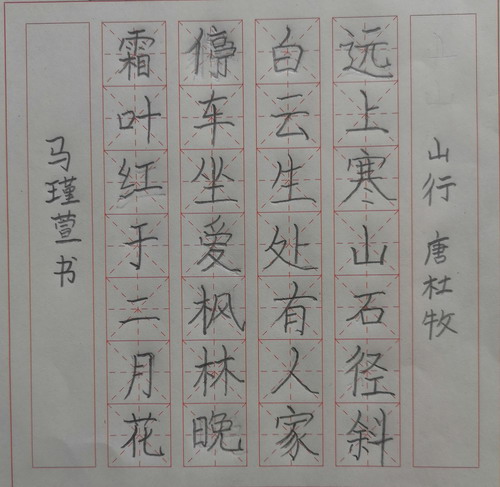 山行 唐杜牧
远上寒山石径斜
白云生处有人家
停车坐爱枫林晚
霜叶红于二月花
马瑾萱书